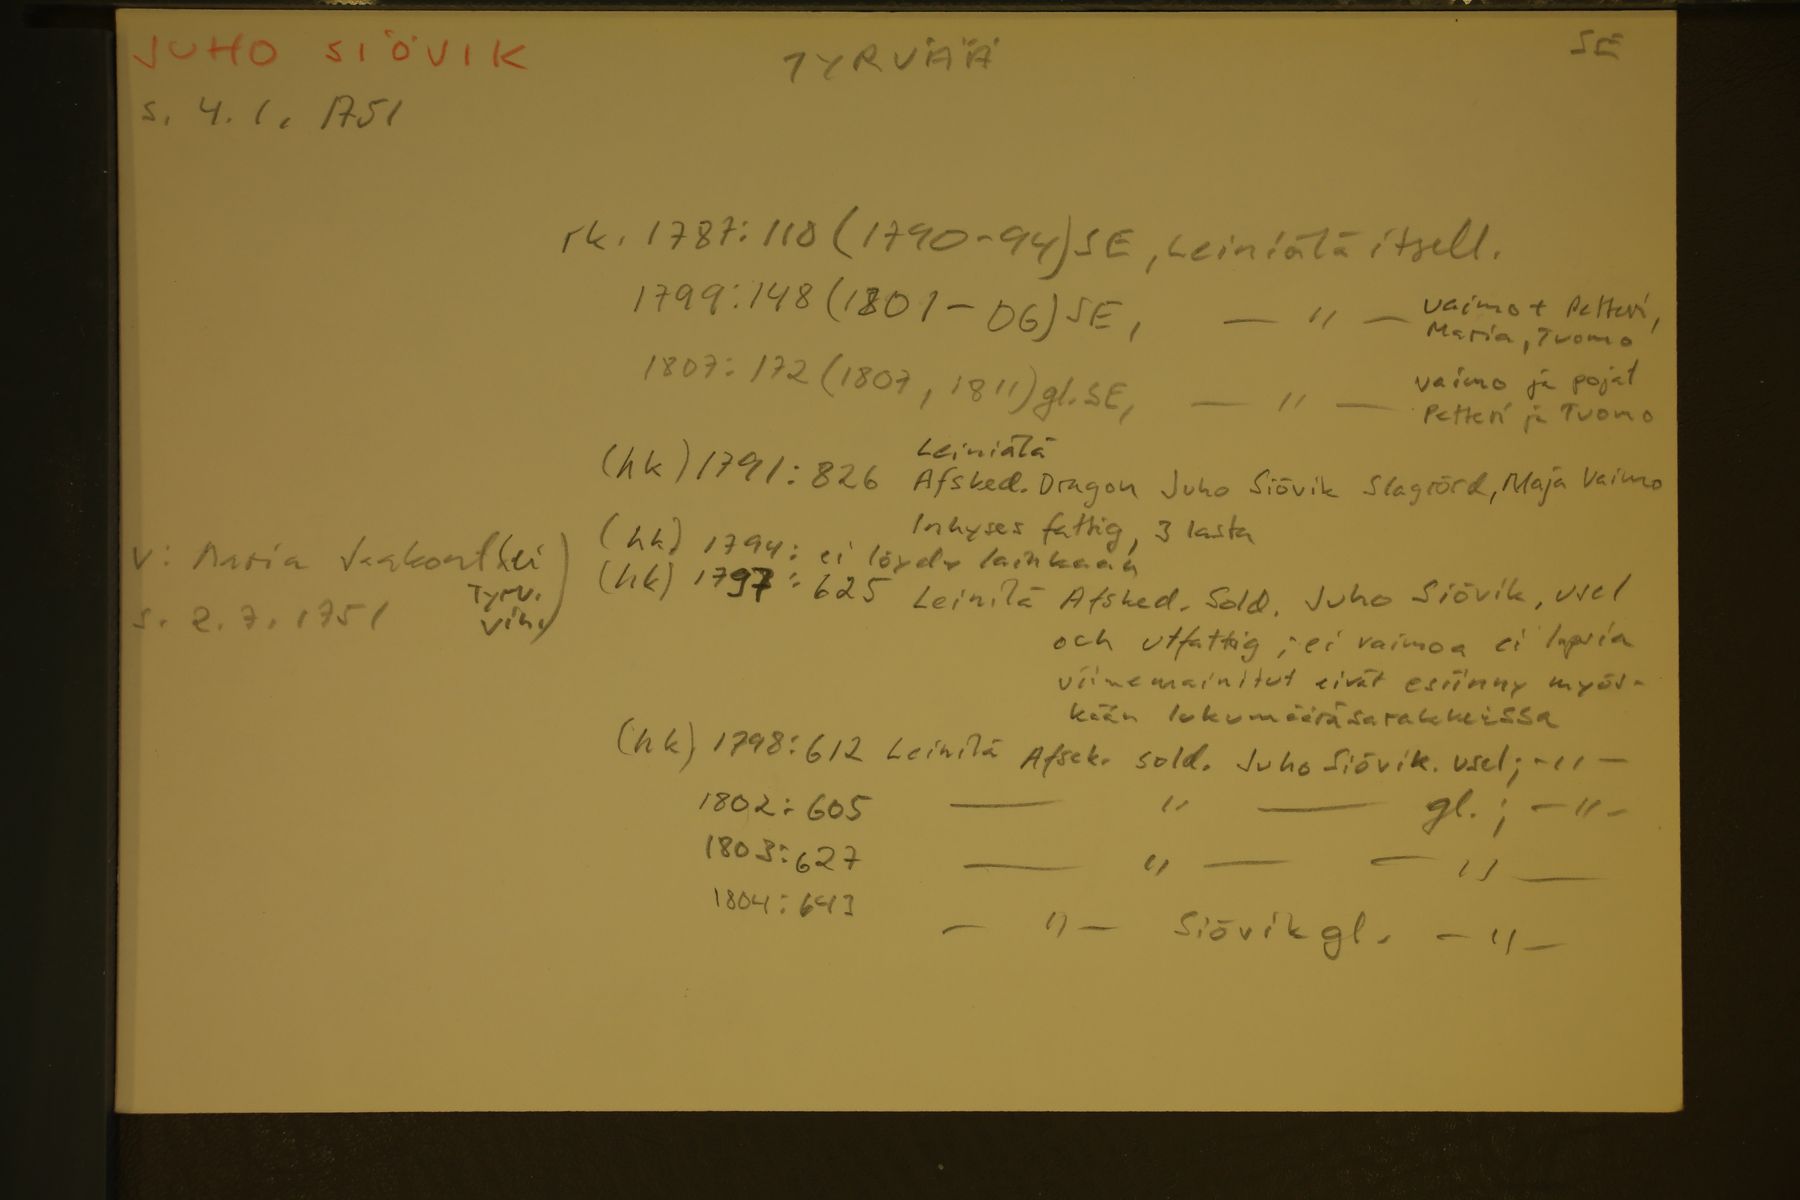 JUHO SIÖVIK
TYRVÄÄ
SE
s. 4.1. 1751
rk. 1787: 118 (1790-94) SE, Leiniälä itsell.
1799: 148 (1801-06) SE, — " — vaimo + Petteri,
Maria, Tuomo
1807: 172 (1807, 1811) gl. SE, — " — vaimo ja pojat
Petteri ja Tuomo
(hk) 1791: 826 Leiniälä
Afsked. Dragon Juho Siövik Slagrörd, Maja Vaimo
Inhyses fattig, 3 lasta
(hk) 1794: ei löydy lainkaan
V: Maria Jaakont (ei
Tyrv.
vih.)
s. 2.7. 1751
(hk) 1797: 625 Leinilä Afsked. Sold. Juho Siövik, usel
och utfattig; ei vaimoa ei lapsia
viimemainitut eivät esiinny myös-
kään lukumääräsarakkeissa
(hk) 1798: 612 Leinilä Afsk. sold. Juho Siövik. usel; - " -
1802: 605 — " — gl.; - " -
1803: 627 — " — — " —
1804: 643
— " — Siövik gl. - " -